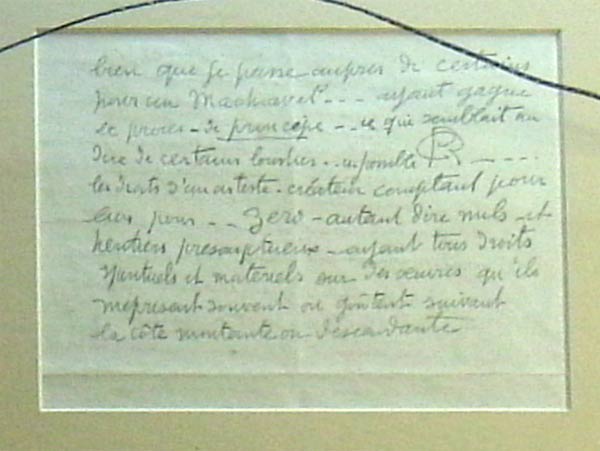 bien que je passe aupres de certains
pour un Machiavel - - - ayant gagné
ce procès - de principe - - ce qui semblait au
dire de certains impossible - - - -
les droits d'un artiste - créateur comptant pour
eux pour - - - Zero - autant dire nuls - et
heritiers presomptueux - ayant tous droits
spirituels et materiels sur des œuvres qu'ils
meprisent souvent ou goûtent suivant
la côte montante ou descendante